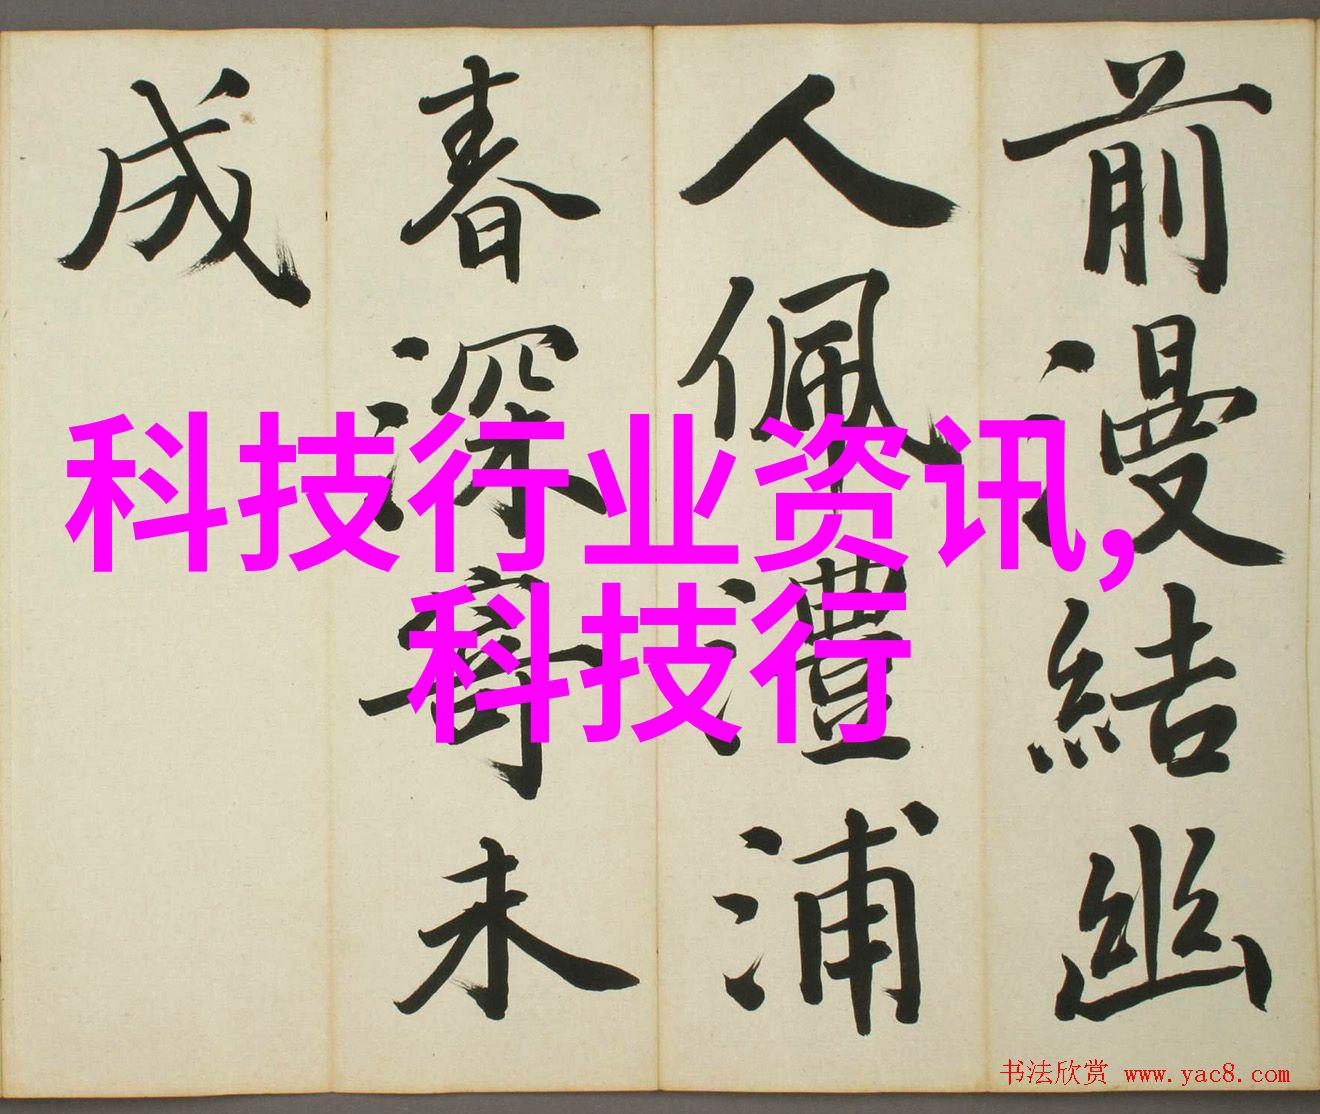 前漫結幽
人佩澧浦
春深寄未
成
科技行业资讯,
科技行
书法欣赏 www.yac8.com